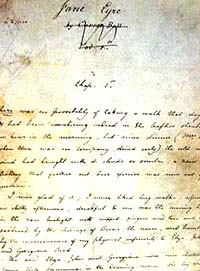 Jane Eyre
by Currer Bell
Vol. 1st
Chap. 1st
There was no possibility of taking a walk that day.
had been wandering indeed in the leafless
hour in the morning, but since dinner (Mrs
when there was no company, dined early) the cold
wind had brought with it clouds so sombre, a rain
that further out door exercise was now out
question.
I was glad of it; I never liked long walks
chilly afternoons; dreadful to me was the coming
in the raw twilight with nipped fingers and toes and
saddened by the chidings of Bessie the nurse, and
by the consciousness of my physical inferiority to Eliza
and Georgiana Reed.
The said Eliza, John and Georgiana were now
round their mamma in the drawing-room